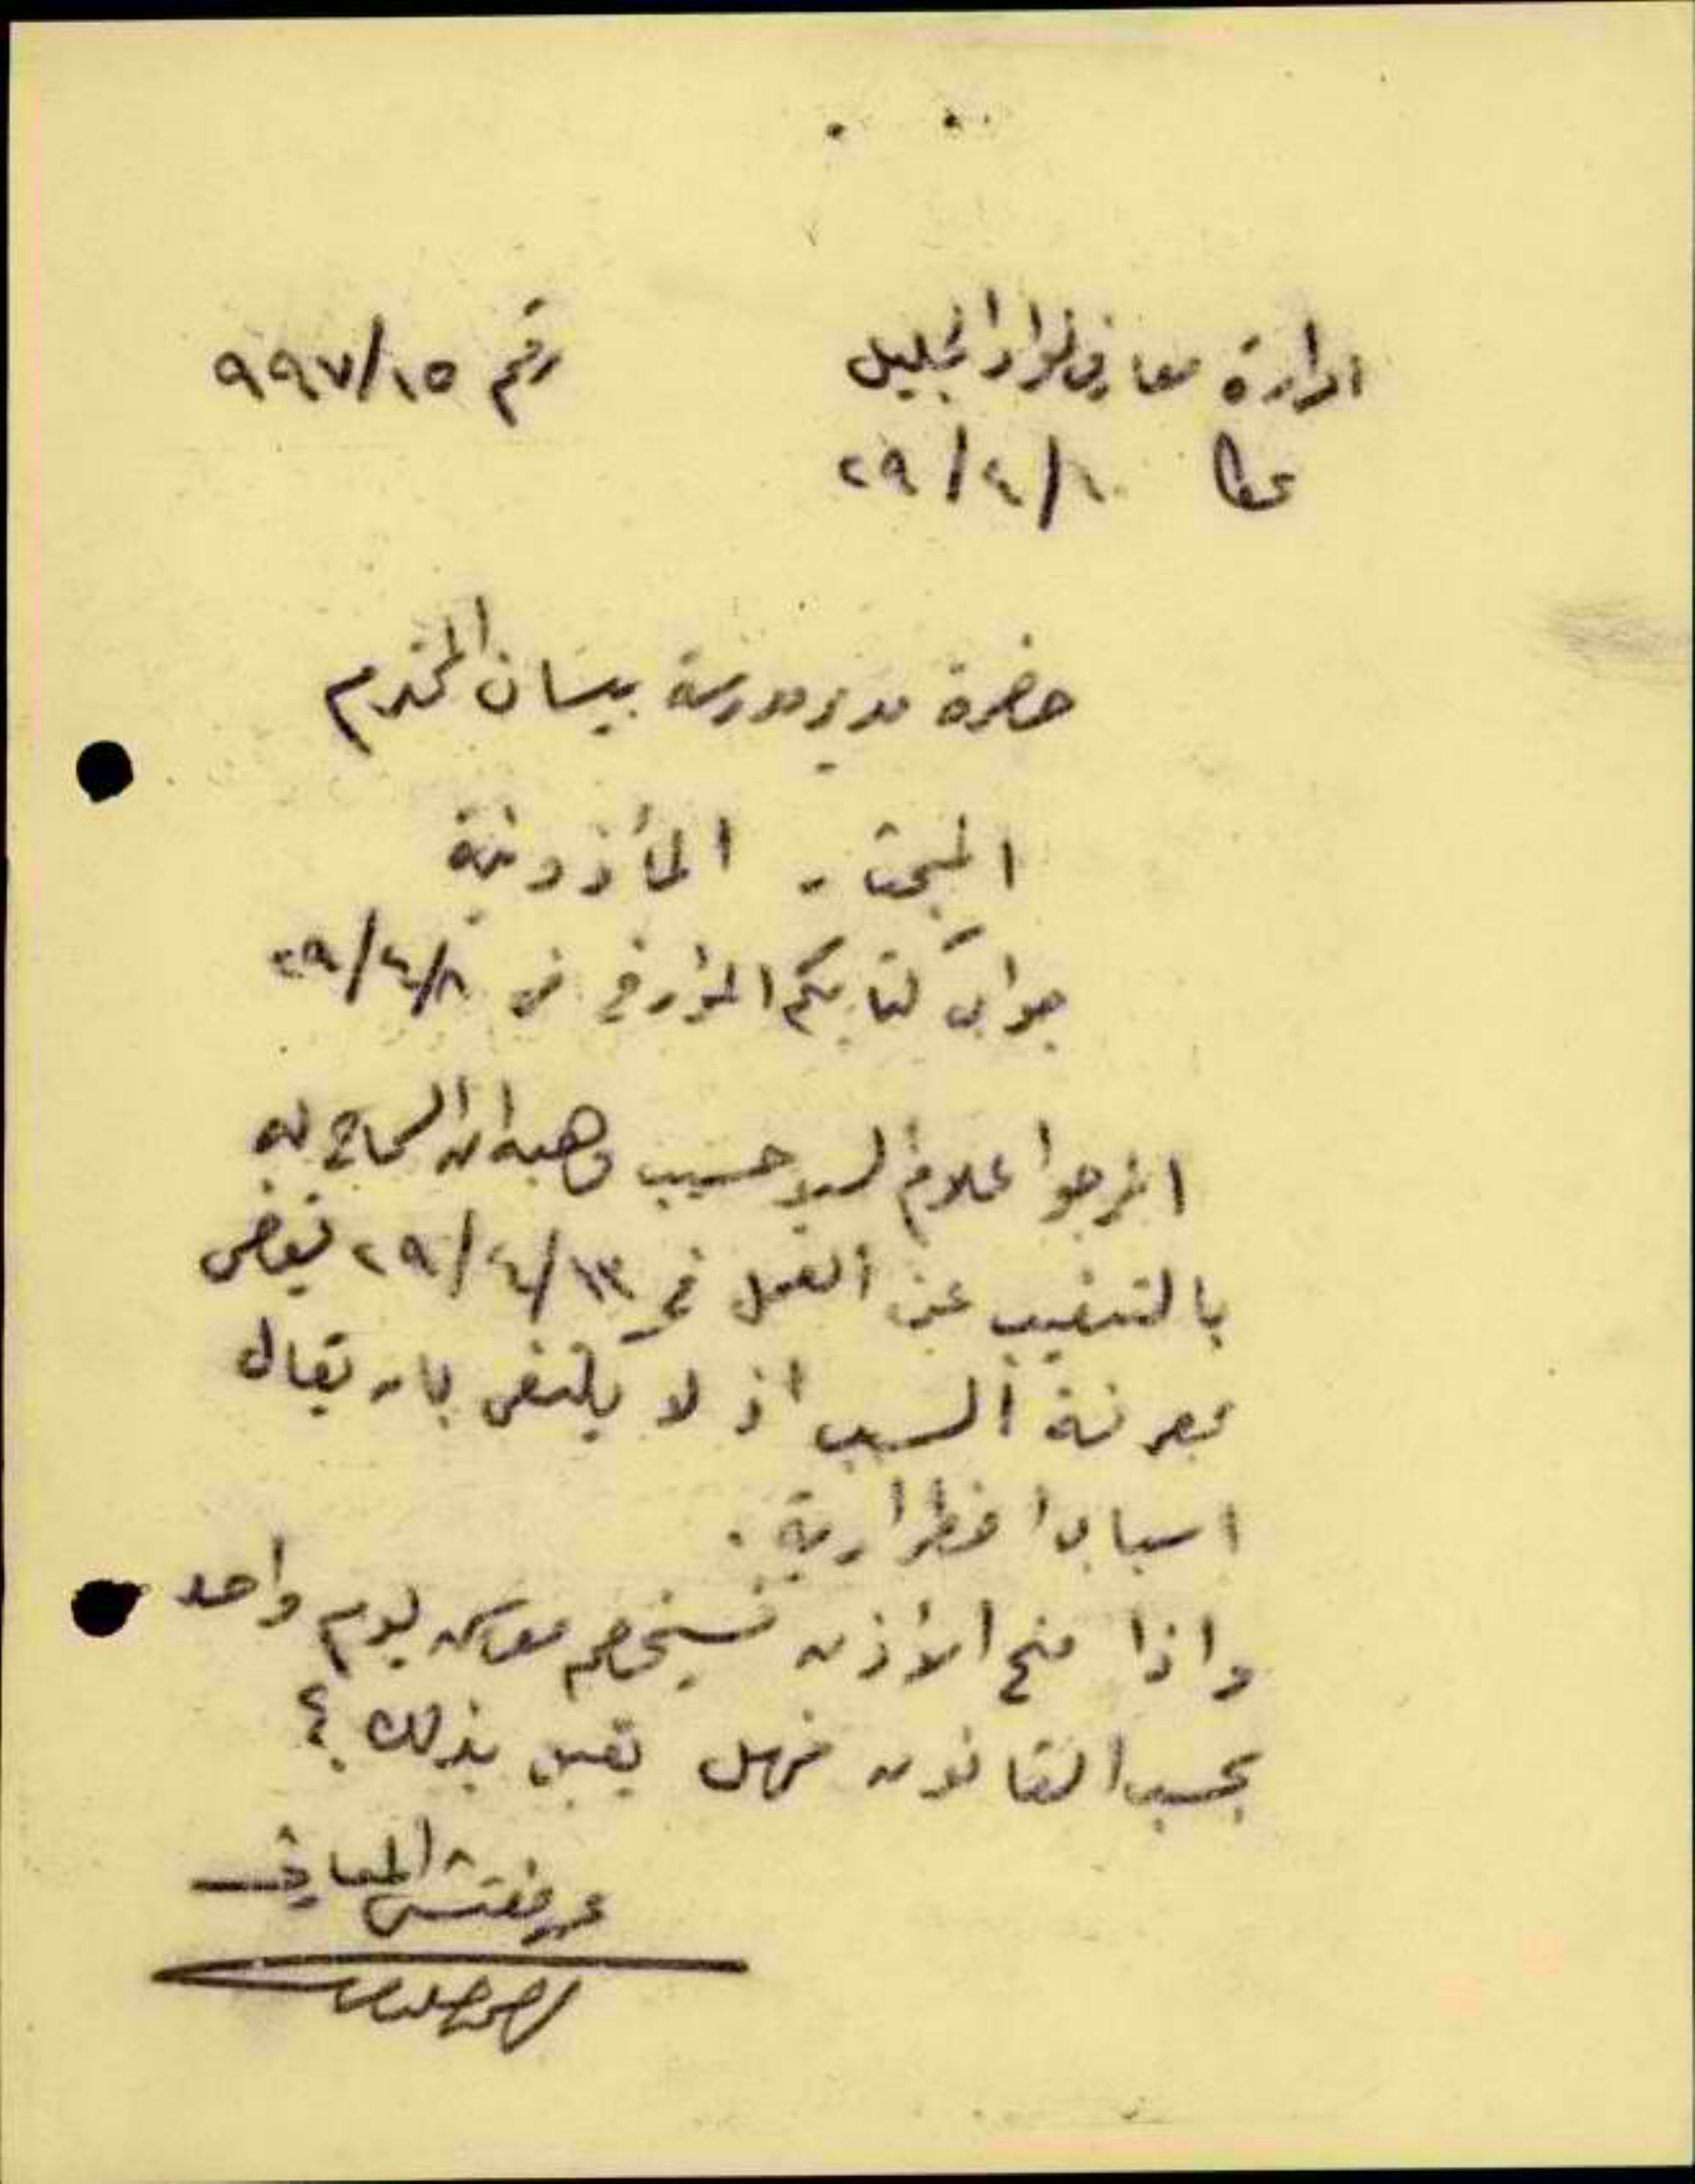 ادارة معارف لواء الجليل
رقم ٩٩٧/١٥
عكا ١٠/٤/٢٩
حضرة مدير مدرسة بيسان المحترم
المبحث - المأذونية
جواب كتابكم المؤرخ في ٨/٤/٢٩
ارجو اعلام السيد حسيب وهبه ان السماح له
بالتغيب عن العمل في ١٣/٤/٢٩ يقضي
بمعرفة السبب اذ لا يكتفى بان يقال
اسباب اضطرارية .
واذا منح الأذن فسيخصم معاش يوم واحد
بحسب القانون فهل يقبل بذلك ؟
مفتش المعارف